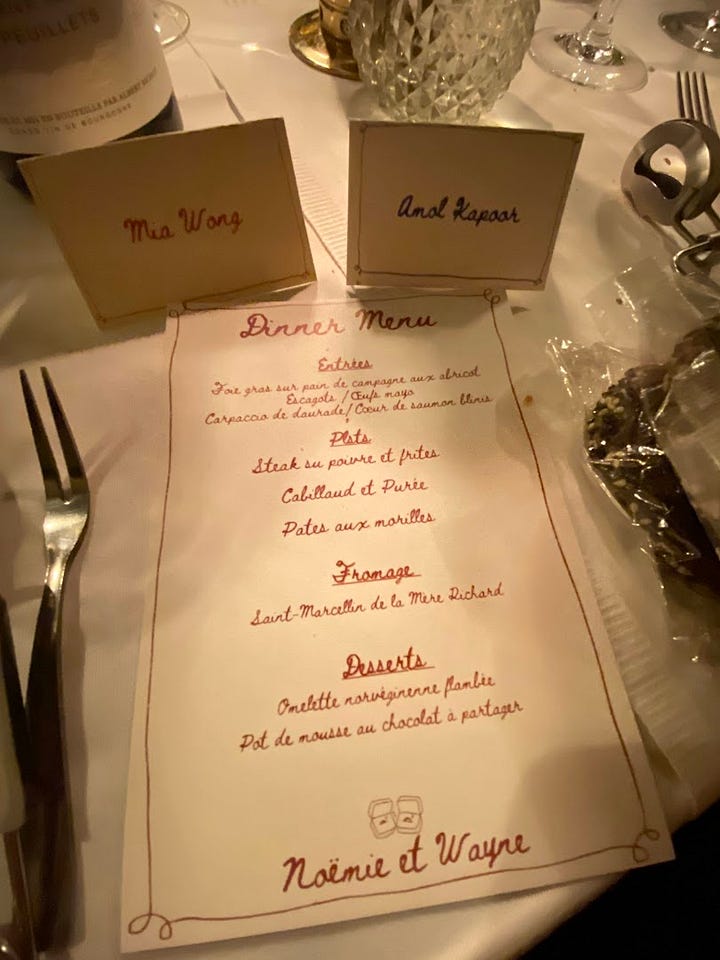 PEUILLETS
MIS EN BOUTEILLE PAR ALBERT
GRAND VIN DE BOURGOGNE
Mia Wong
Amol Kapoor
Dinner Menu
Entrées
Foie gras sur pain de campagne aux abricot
Escagots / Œufs mayo
Carpaccio de daurade/ Cœur de saumon blinis
Plats
Steak au poivre et frites
Cabillaud et Purée
Pates aux morilles
Fromage
Saint-Marcellin de la Mère Richard
Desserts
Omelette norvéginenne flambée
Pot de mousse au chocolat à partager
Noëmie et Wayne